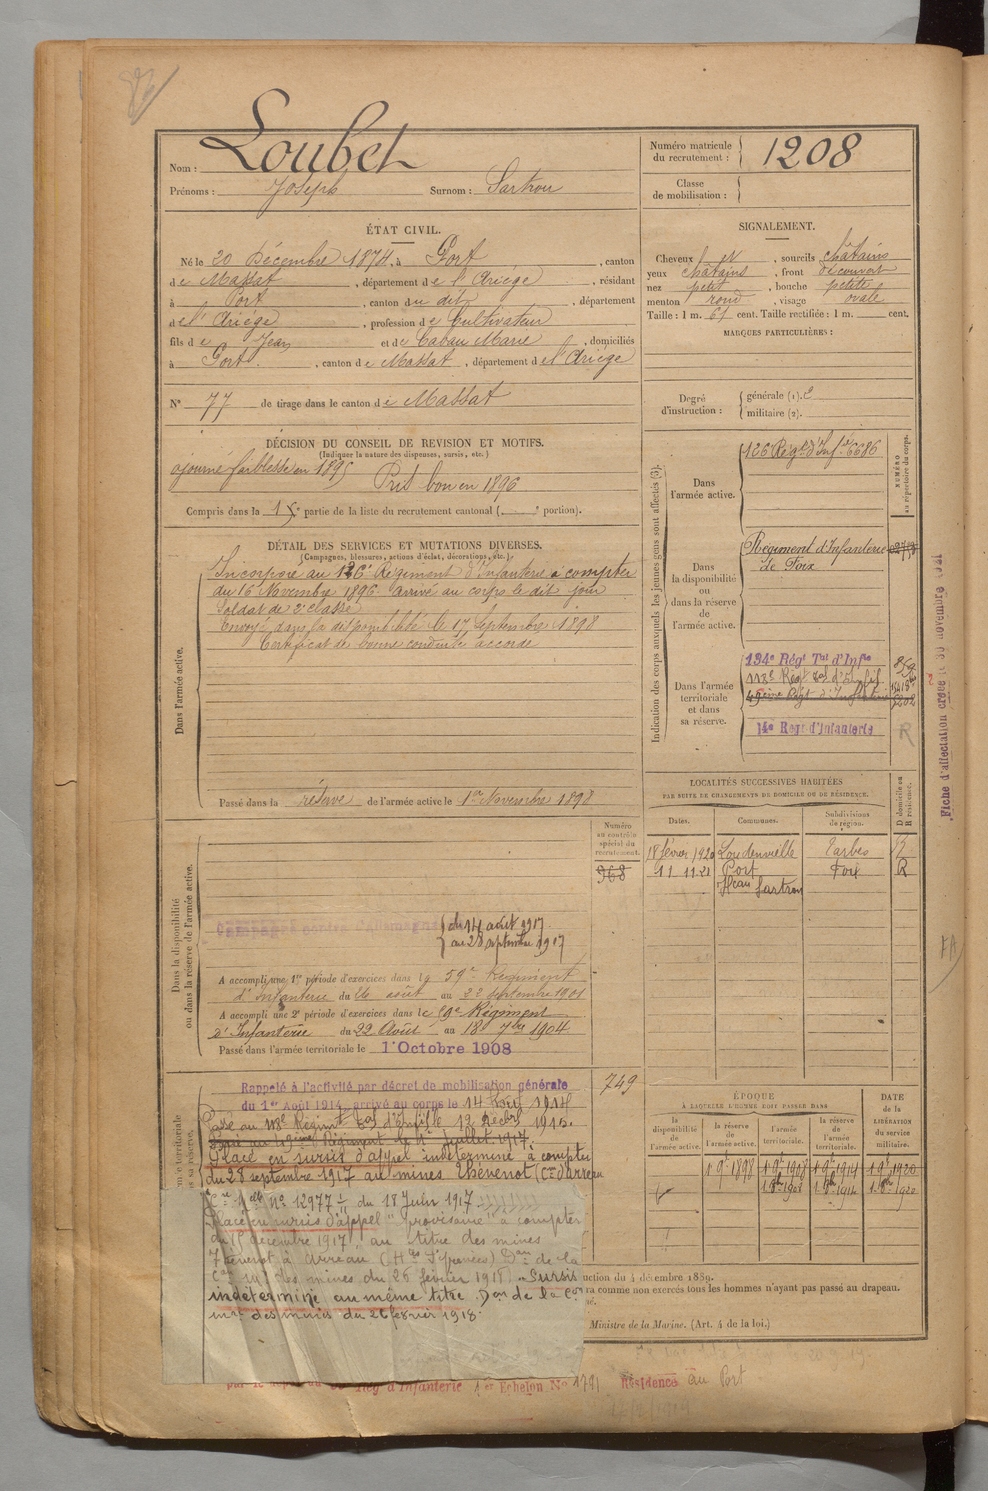 Nom : Loubet
Prénoms : Joseph Surnom : Sartrou
Numéro matricule
du recrutement : 1208
Classe
de mobilisation :
ÉTAT CIVIL.
Né le 20 Décembre 1874, à Port, canton
de Massat, département de l'Ariège, résidant
à Port, canton du dit, département
de l'Ariège, profession de Cultivateur
fils de Jean et de Cabau Marie, domiciliés
à Port, canton de Massat, département de l'Ariège
N° 77 de tirage dans le canton de Massat
SIGNALEMENT.
Cheveux et, sourcils châtains
yeux châtains, front découvert
nez petit, bouche petite
menton rond, visage ovale
Taille : 1 m. 61 cent. Taille rectifiée : 1 m. cent.
MARQUES PARTICULIÈRES :
Degré
d'instruction :
générale (1). 2
militaire (2).
DÉCISION DU CONSEIL DE REVISION ET MOTIFS.
(Indiquer la nature des dispenses, sursis, etc.)
ajourné faiblesse en 1895
Pris bon en 1896
Compris dans la 1e partie de la liste du recrutement cantonal ( portion).
DÉTAIL DES SERVICES ET MUTATIONS DIVERSES.
(Campagnes, blessures, actions d'éclat, décorations, etc.)
Dans l'armée active.
Incorporé au 126e Régiment d'infanterie à compter
du 16 Novembre 1896. Arrivé au corps le dit jour
Soldat de 2e classe
Envoyé dans la disponibilité le 17 Septembre 1898
Certificat de bonne conduite accordé
Passé dans la réserve de l'armée active le 1er Novembre 1898
Indication des corps auxquels les jeunes gens sont affectés (3).
NUMÉRO
au répertoire du corps.
Dans
l'armée active.
126 Régt d'Infie 6686
Dans
la disponibilité
ou
dans la réserve
de
l'armée active.
Régiment d'Infanterie
de Foix
Dans l'armée
territoriale
et dans
sa réserve.
134e Régt Tal d'Infie 859
113e Régt tal d'Infie
49ème Régt d'Infanterie
14e Regt d'Infanterie R
Fiche d'affectation créée le 30 novembre
LOCALITÉS SUCCESSIVES HABITÉES
PAR SUITE DE CHANGEMENTS DE DOMICILE OU DE RÉSIDENCE.
Dates. Communes. Subdivisions de région. D domicile ou R résidence.
18 février 1920 Loudenvielle Tarbes R
11.11.21 Port Foix R
hau Sartrou
Dans la disponibilité
ou dans la réserve de l'armée active.
Numéro
au contrôle
spécial du
recrutement.
968
Campagne contre l'Allemagne
du 14 août 1917
au 28 septembre 1917
A accompli une 1re période d'exercices dans le 59e Régiment
d'Infanterie du 26 août au 22 septembre 1901
A accompli une 2e période d'exercices dans le 59e Régiment
d'Infanterie du 22 Août au 18 7bre 1904
Passé dans l'armée territoriale le 1er Octobre 1908
749
Rappelé à l'activité par décret de mobilisation générale
du 1er Août 1914, arrivé au corps le 14 Août 1914
Passé au 113e Régimnt tal d'Infie le 12 Décbre 1915.
Passé au 49ème Régiment le 1er Juillet 1917.
Placé en sursis d'appel indéterminé à compter
du 28 septembre 1917 au mines Thévenot (Cne d'Arreau
Cre Melle No 12977 1/11 du 18 Juin 1917
Placé en sursis d'appel "provisoire" à compter
du 15 décembre 1917 au titre des mines
Thévenot à Arreau (Htes Pyrénées) Don de la
Con mre des mines du 26 février 1918. Sursis
indéterminé au même titre. Don de la Con
mre des mines du 26 février 1918.
ÉPOQUE
À LAQUELLE L'HOMME DOIT PASSER DANS
la disponibilité de l'armée active.
la réserve de l'armée active.
l'armée territoriale.
la réserve de l'armée territoriale.
DATE
de la
LIBÉRATION
du service
militaire.
1 9e 1898 1 9e 1908 1 9e 1914 1 9e 1920
1 8re 1908 1 8re 1914 1 8re 1920
uction du 4 décembre 1889.
ra comme non exercés tous les hommes n'ayant pas passé au drapeau.
Ministre de la Marine. (Art. 4 de la loi.)
Rég d'Infanterie 1er Echelon No 1791 Résidence au Port